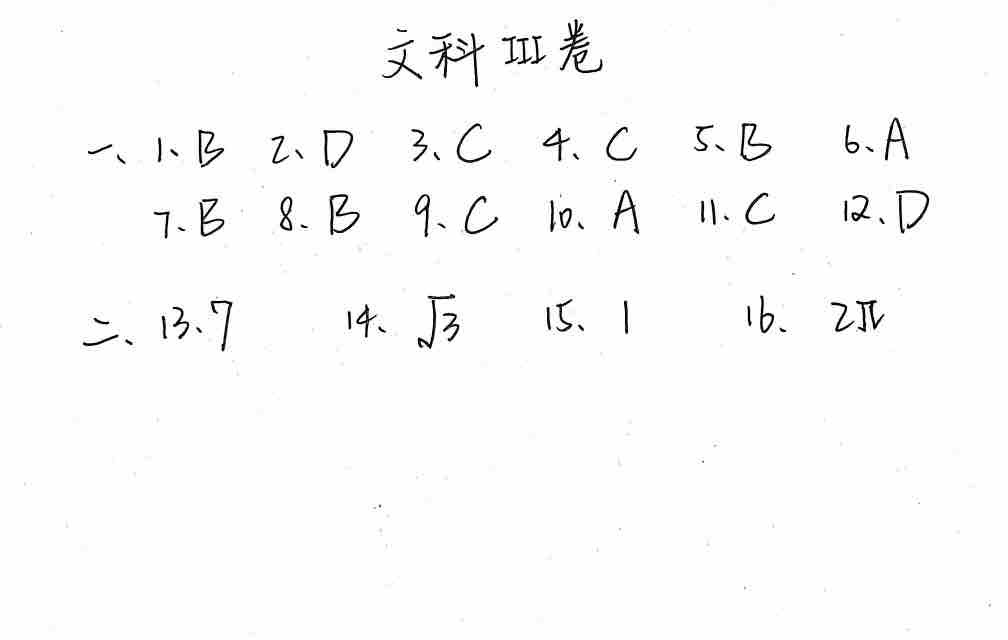 文科III卷
一、1、B 2、D 3、C 4、C 5、B 6、A
7、B 8、B 9、C 10、A 11、C 12、D
二、13、7 14、√3 15、1 16、2π